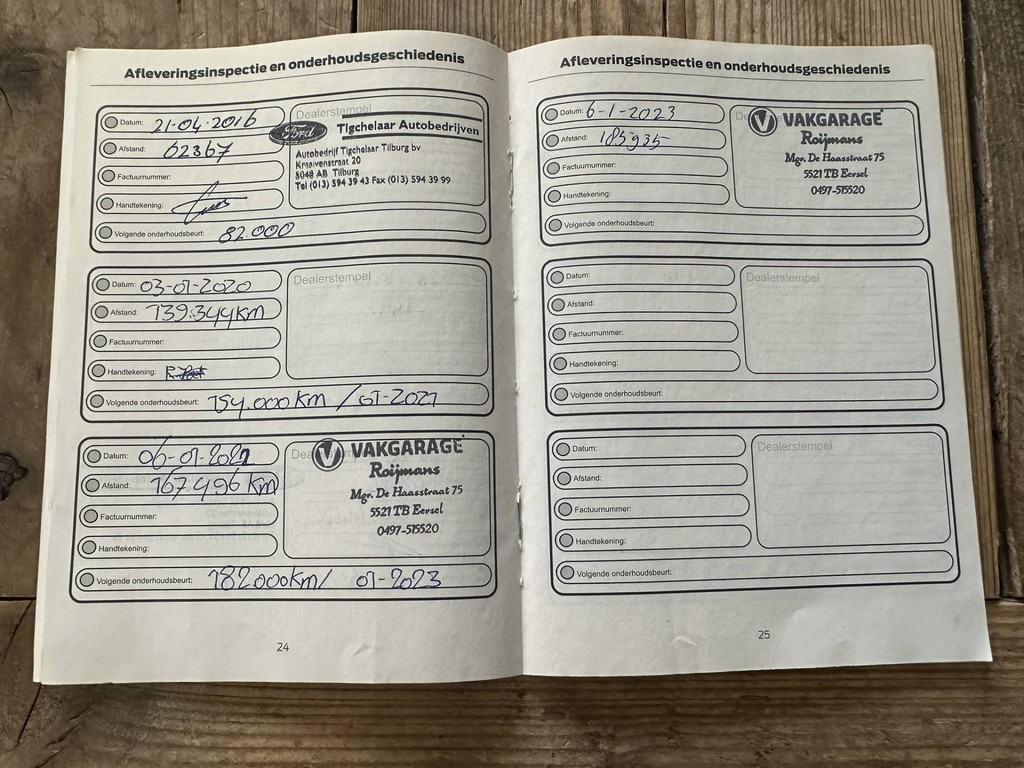 Afleveringsinspectie en onderhoudsgeschiedenis
Datum: 21-04-2016
Afstand: 62367
Factuurnummer:
Handtekening:
Volgende onderhoudsbeurt: 82.000
Dealerstempel
Ford
Tigchelaar Autobedrijven
Autobedrijf Tigchelaar Tilburg bv
Kraaivenstraat 20
5048 AB Tilburg
Tel (013) 594 39 43 Fax (013) 594 39 99
Datum: 03-01-2020
Afstand: 139.344km
Factuurnummer:
Handtekening:
Volgende onderhoudsbeurt: 154.000km / 01-2021
Dealerstempel
Datum: 06-01-2022
Afstand: 167.496 km
Factuurnummer:
Handtekening:
Volgende onderhoudsbeurt: 182000km/ 01-2023
VAKGARAGE
Roijmans
Mgr. De Haasstraat 75
5521 TB Eersel
0497-515520
24
Afleveringsinspectie en onderhoudsgeschiedenis
Datum: 6-1-2023
Afstand: 185935
Factuurnummer:
Handtekening:
Volgende onderhoudsbeurt:
VAKGARAGE
Roijmans
Mgr. De Haasstraat 75
5521 TB Eersel
0497-515520
Datum:
Afstand:
Factuurnummer:
Handtekening:
Volgende onderhoudsbeurt:
Dealerstempel
Datum:
Afstand:
Factuurnummer:
Handtekening:
Volgende onderhoudsbeurt:
Dealerstempel
25